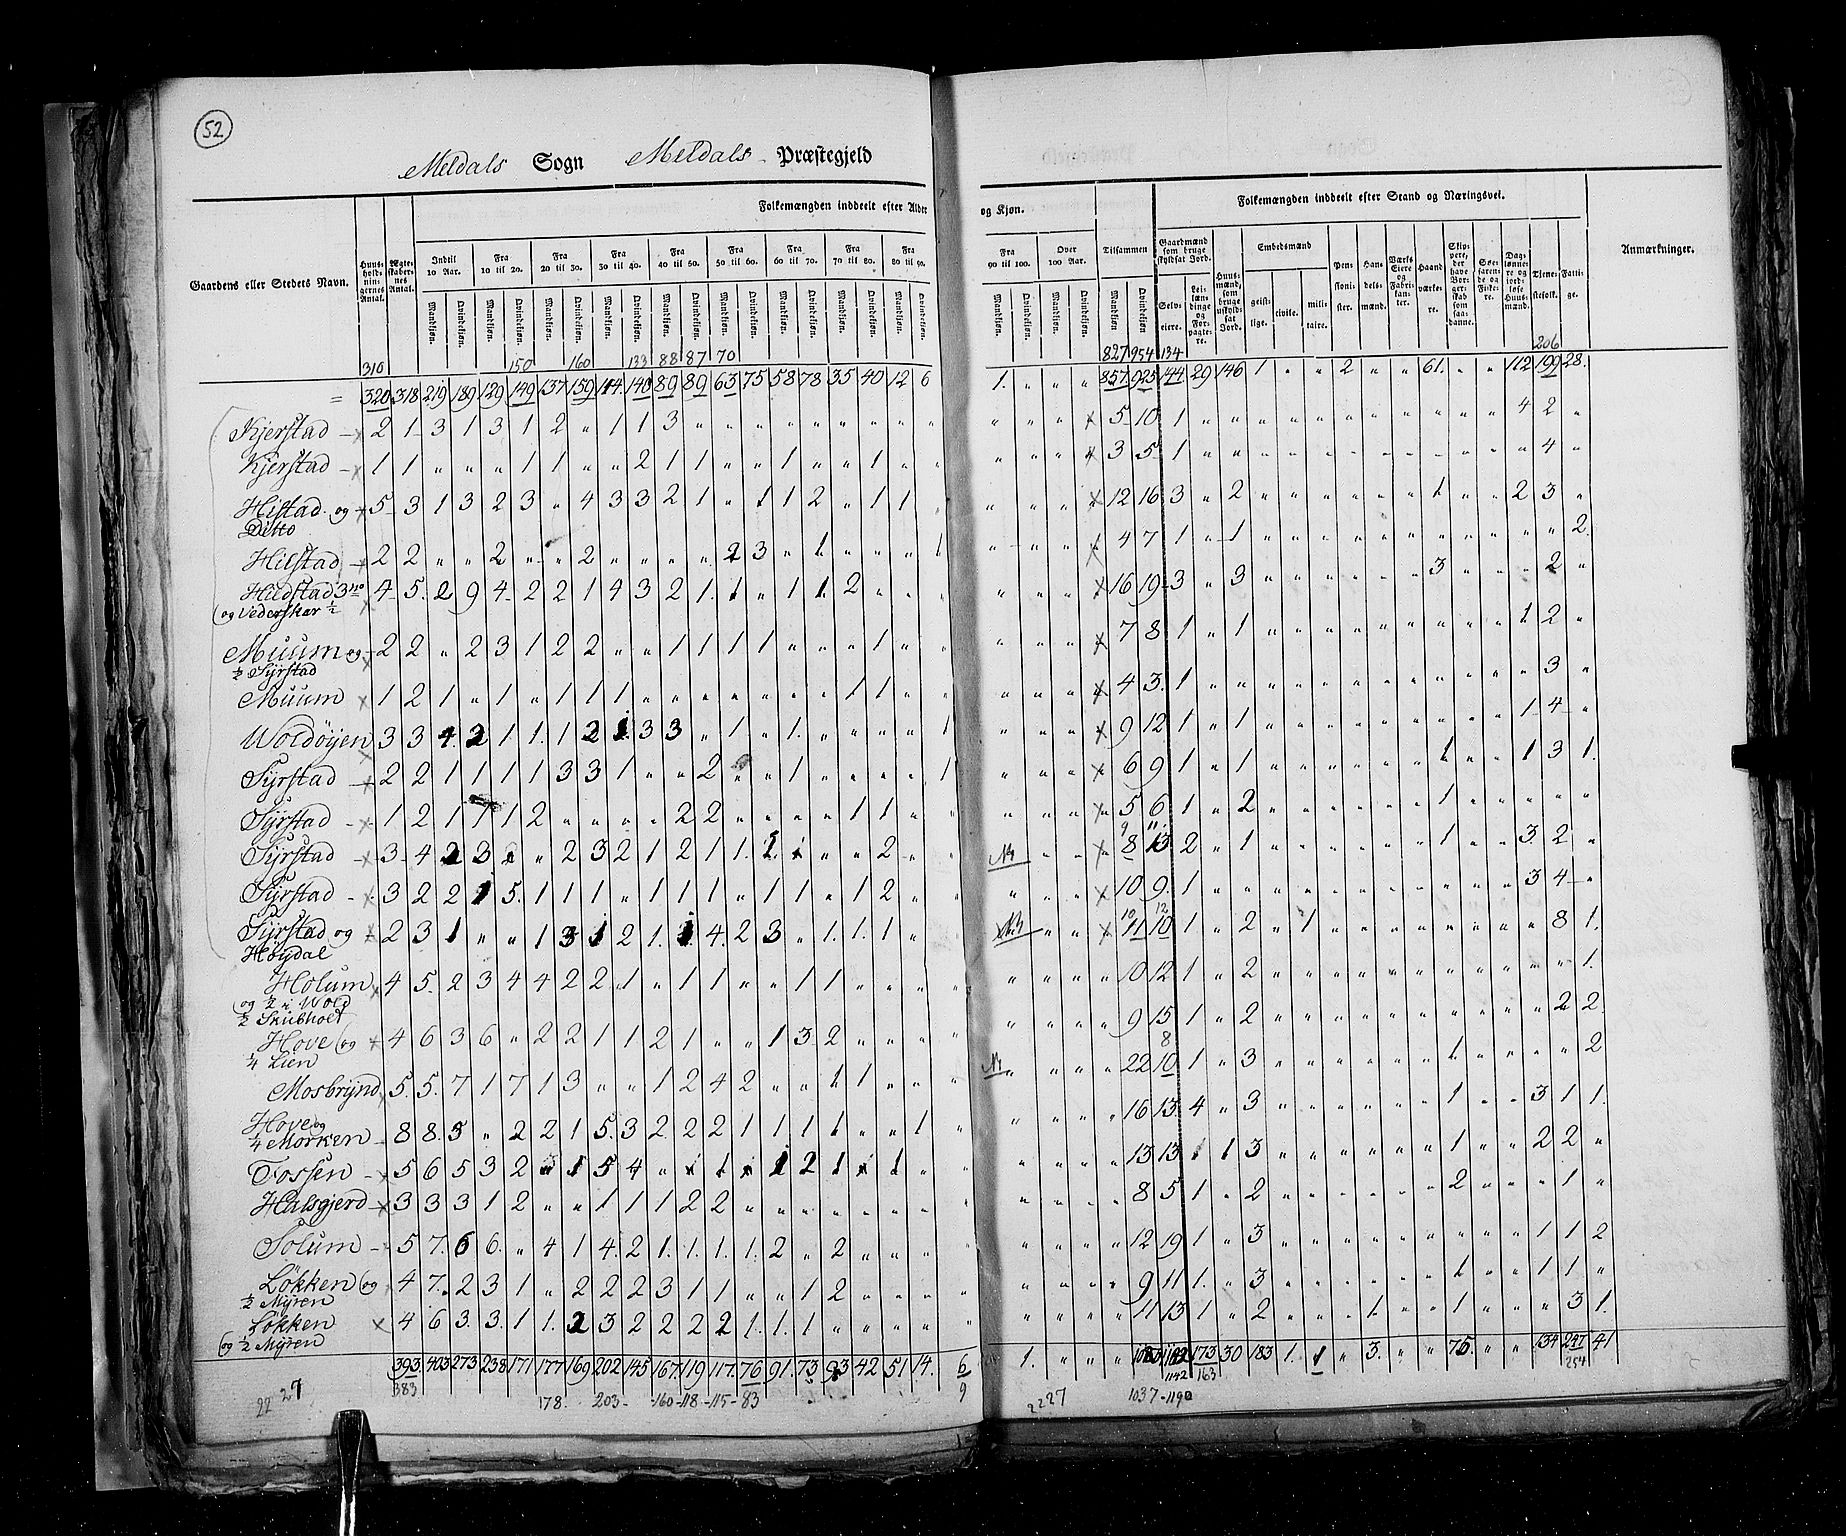 52
Meldals Sogn Meldals Præstegjeld
Folkemængden inddeelt efter Alder og Kjøn.
Folkemængden inddeelt efter Stand og Næringsvei.
Gaardens eller Stedets Navn.
Huusholdningernes Antal.
Ægteskabernes Antal.
Indtil 10 Aar.
Fra 10 til 20.
Fra 20 til 30.
Fra 30 til 40.
Fra 40 til 50.
Fra 50 til 60.
Fra 60 til 70.
Fra 70 til 80.
Fra 80 til 90.
Fra 90 til 100.
Over 100 Aar.
Tilsammen
Mandkjøn. Qvindekjøn.
Gaardmænd som bruge skyldsat Jord.
Selveiere.
Leilændinge og Forpagtere.
Huusmænd, som bruge uskyldsat Jord.
Embedsmænd
geistlige. civile. militaire.
Pensionister.
Handelsmænd.
Værks Eiere og Fabrikanter.
Haandværkere.
Skippere, der have Borgerskab som saadanne.
Søefarende og Fiskere.
Daglønnere og jordløse Huusmænd.
Tjenestefolk.
Fattige.
Anmærkninger.
310 150 160 133 88 87 70 827 954 134 206
= 320 318 219 189 129 149 137 159 114 140 89 89 63 75 58 78 35 40 12 6 1. " " " 857 925 144 29 146 1 " " 2 " " 61. " " 112 199 28.
Kjerstad 2 1 3 1 3 1 2 " 1 1 3 " " " " " " " " " " " " × 5 10 1 " " " " " " " " " " " " 4 2 "
Kjerstad 1 1 " " " 1 1 " " 2 1 1 " " 1 " " 1 " " " " " × 3 5 1 " " " " " " " " " " " " " 4 "
Histad og 5 3 1 3 2 3 " 4 3 3 2 1 " 1 1 2 " 1 1 " × 12 16 3 " 2 " " " " " " 1 " " 2 3 "
Ditto
Hilstad 2 2 " " 2 " " 2 " " " " 2 3 " 1 " " " 1 4 7 1 " 1 " " " " " " " " " " " 2
Hildstad 3 no 4 5 2 9 4 2 2 1 4 3 2 1 1 " 1 1 2 " " " × 16 19 3 " 3 " " " " " " 3 " " " 2 "
og Vederskar ½
Muum og 2 2 " 2 3 1 2 2 " " 1 1 1 1 " " " 1 " " × 7 8 1 " 1 " " " " " " " " " 1 2 "
½ Syrstad
Muum 1 2 1 " 1 " 1 1 1 " " " " " " " 1 1 " " × 4 3 1 " " " " " " " " " " " " 3 "
Woldøyen 3 3 4 2 1 1 1 2 1 3 3 " 1 " 1 " " " " 1 × 9 12 1 " 1 " " " " " " " " " 1 4 "
Syrstad 2 2 1 1 1 1 3 3 1 " " 2 " " 1 " " " " 1 × 6 9 1 " 1 " " " " " " 1 " " 1 3 1.
Syrstad 1 2 1 1 1 2 " " " " 2 2 " " " " 1 1 " " × 5 6 1 " 2 " " " " " " 1 " " " " "
9 11
Syrstad 3 4 2 3 " " 2 3 2 1 2 1 1 " " " 2 " " 8 13 2 " 1 " " " " " " 1 " " 3 2 "
Syrstad 3 2 2 1 5 1 1 1 " 1 1 1 " 1 1 " 1 2 " " × 10 9 1 " " " " " " " " " " " 3 4 "
10 12
Syrstad og 2 3 1 " " 1 3 1 2 1 1 4 2 3 " 1 1 1 " " 11 10 1 " 2 " 1 " " " " " " " " 8 1.
Høydal
Holum 4 5 2 3 4 4 2 2 1 " 1 1 " " 1 1 " " " " 10 12 1 " 2 " " " " " " " " " " " 1.
og ½ i Wold
½ Skubholt
Hove og 4 6 3 6 " 2 2 1 1 2 1 " " 1 3 2 " " " " 9 15 1 " 2 " " " " " " " " " " 2 2
¼ Lien
8
Mosbrynd 5 5 7 1 7 1 3 " " 1 2 4 2 " " 1 1 " " " 22 10 1 " 3 " " " " " " 1 " " " " 2
Hove og
¼ Morken 8 8 5 " 2 2 1 5 3 2 2 2 1 1 1 1 " " 1 " 16 13 4 " 3 " " " " " " 1 " " 3 1 1.
Fossen 5 6 5 3 2 " 1 5 4 13 13 1 1 3 " " " " " " 1 " " 2 2 "
Halsgjerd 3 3 3 1 2 " " 1 1 1 2 2 " " " " " " " " 8 5 1 " 2 " " " " " " 2 " " " 1 "
Solum 5 7 6 6 " 4 1 4 2 1 1 1 1 2 " 2 " " " " 12 19 1 " 3 " " " " " " " " " 1 1 2
Løkken og 4 7 2 3 1 " 2 2 2 3 1 1 " " 1 2 " " " " 9 11 1 " 3 " " " " " " 1 " " 1 1 "
½ Myren
Løkken 4 6 3 3 1 1 2 3 2 2 2 2 1 1 1 " " " " " 11 13 1 " 2 " " " 1 " " 1 " " " 3 1.
og ½ Myren
393 403 273 238 171 177 169 202 145 167 119 117 76 91 73 93 42 51 14 6 1. " " " 1142 173 30 183 1. 1 " 3. " " 75. " " 134 247 41
383 178. 203 160 118 115 83 9 1142 163 254
2227 2227 1037 1190